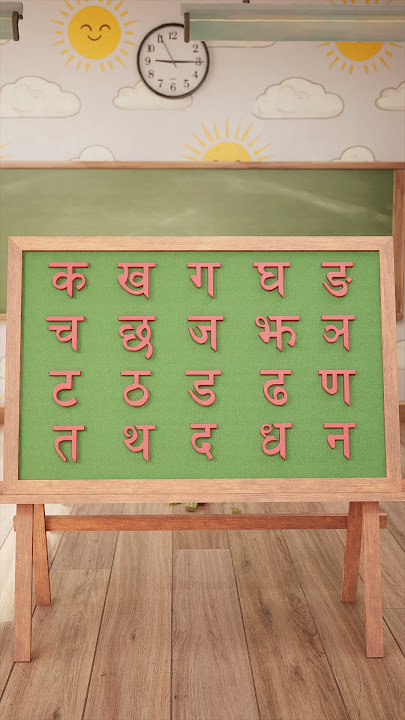 12
11 1
10 2
9 3
8 4
7 5
6
क ख ग घ ङ
च छ ज झ ञ
ट ठ ड ढ ण
त थ द ध न